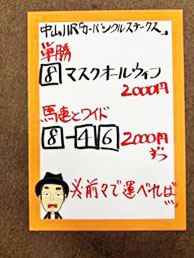 中山11R カーバンクルステークス
単勝
8 マスクオールウィン
2000円
馬連とワイド
8-4 6 2000円
ずつ
※前々で運べれば